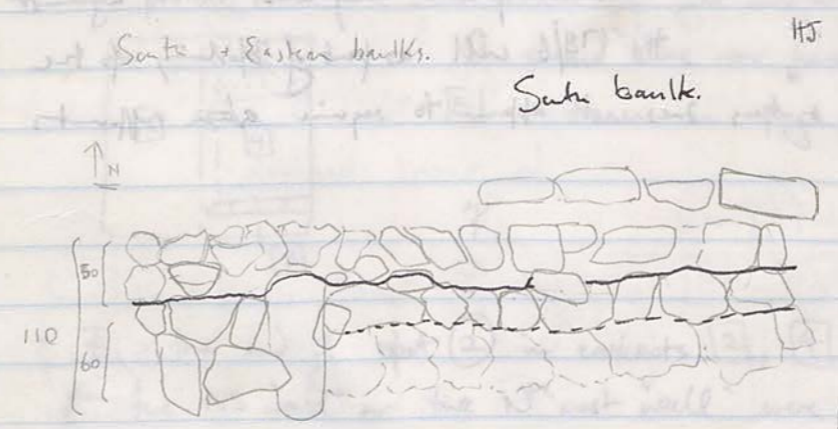 HJ
South + Eastern baulks.
South baulk.
N
50
110
60